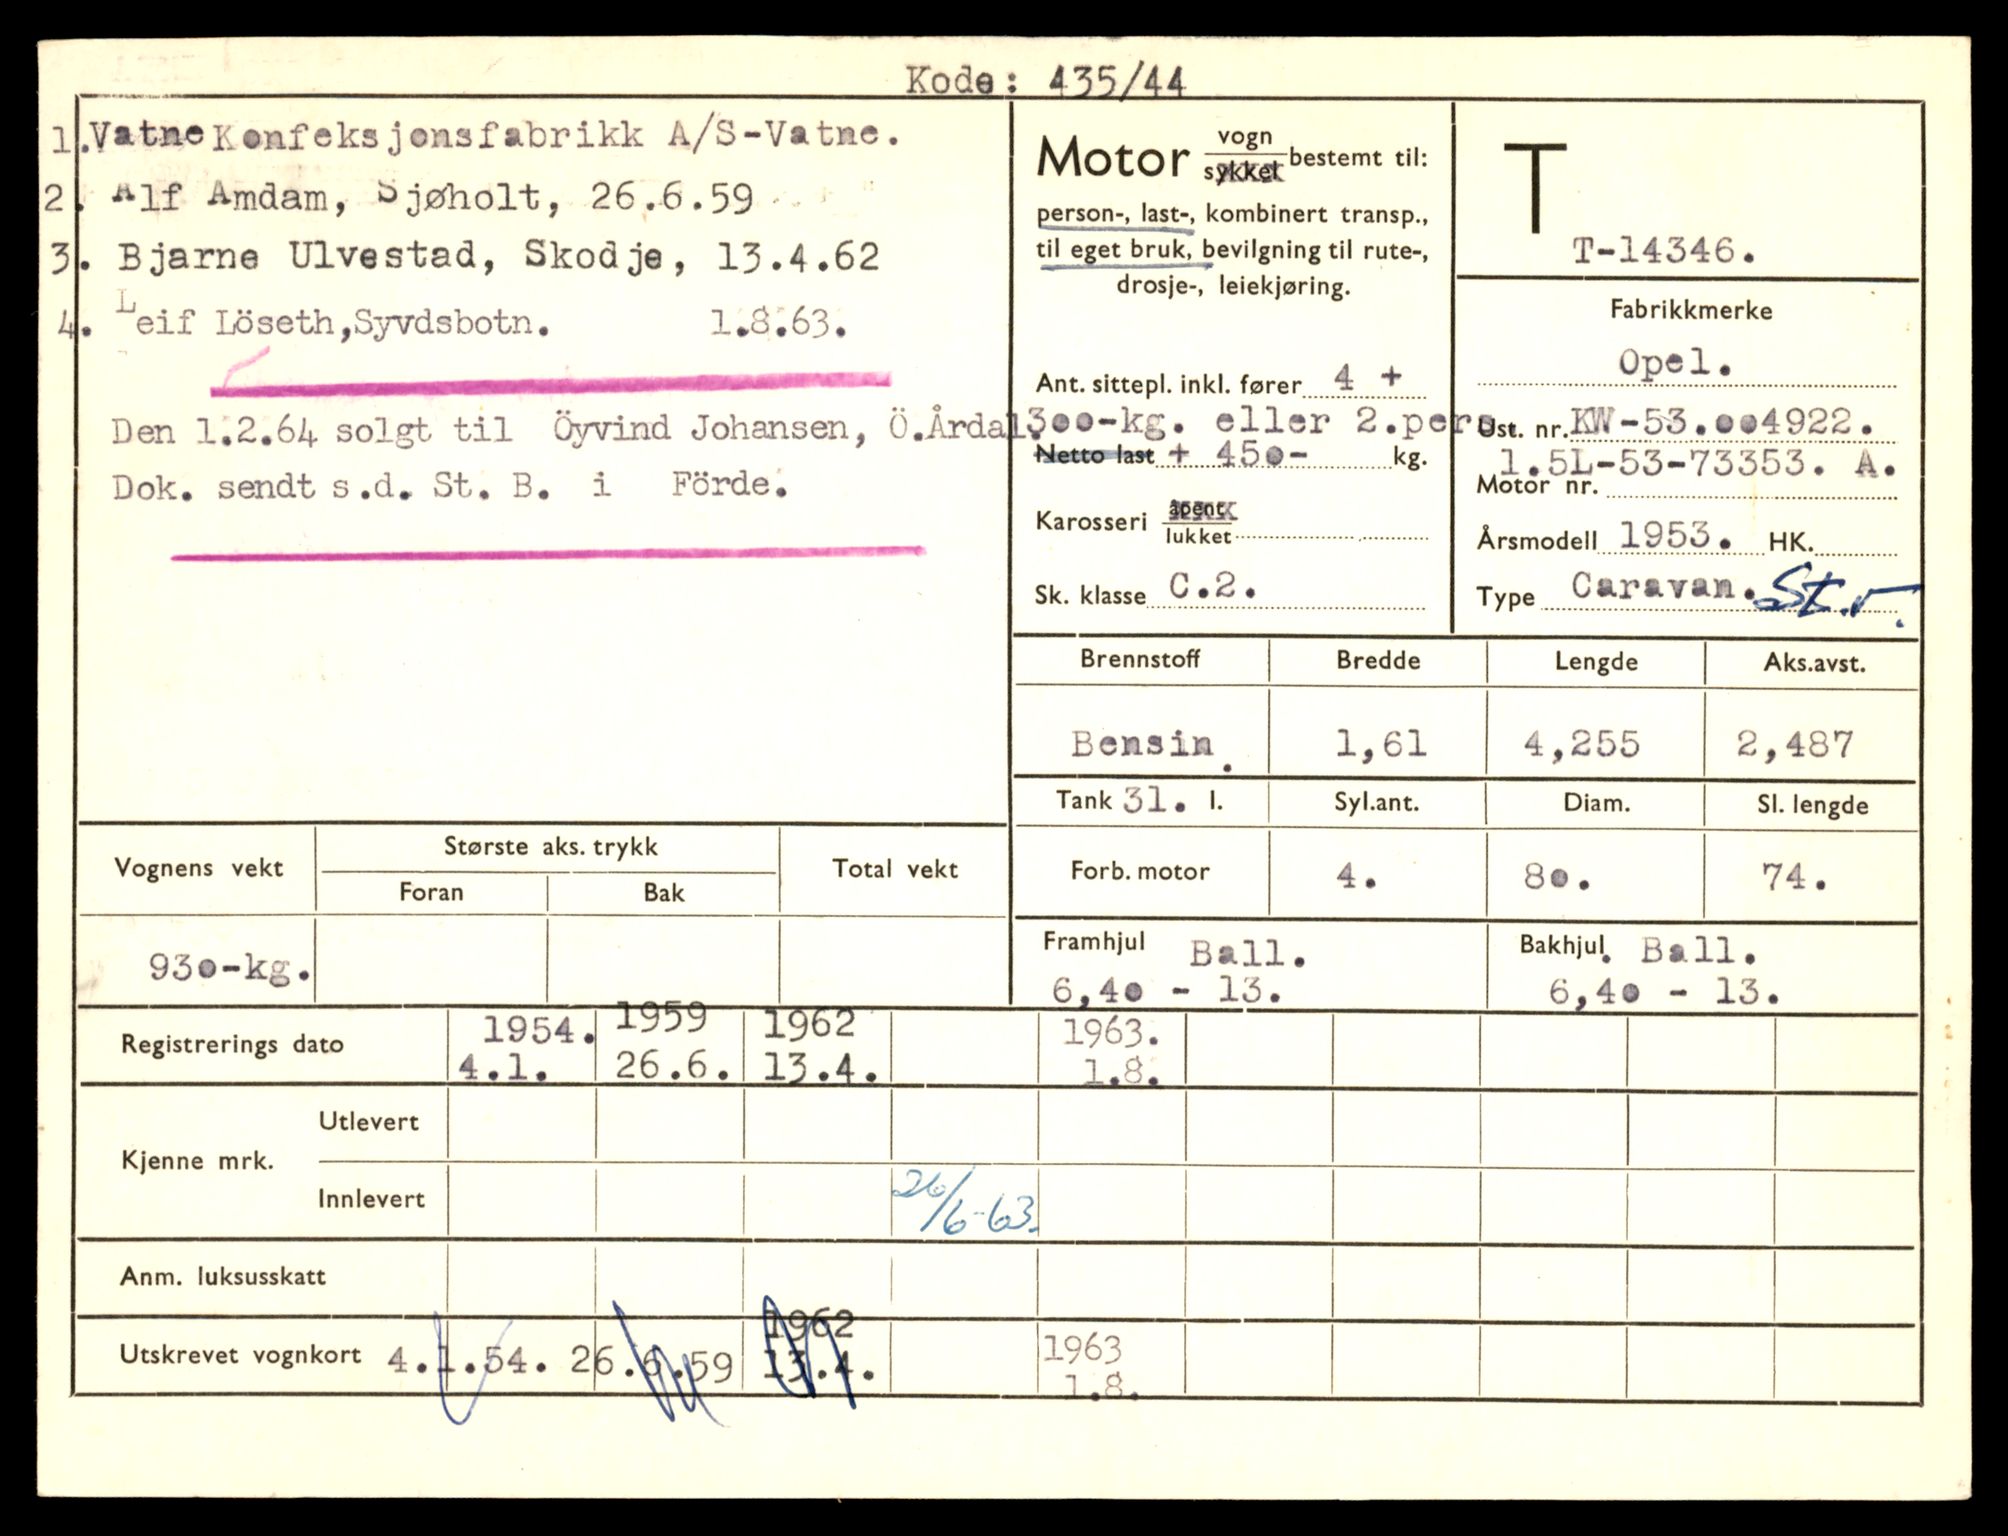 Kode: 435/44
1. Vatne Konfeksjonsfabrikk A/S-Vatne.
2. Alf Amdam, Sjøholt, 26.6.59
3. Bjarne Ulvestad, Skodje, 13.4.62
4. Leif Löseth, Syvdsbotn. 1.8.63.
Den 1.2.64 solgt til Öyvind Johansen, Ö.Årdal.
Dok. sendt s.d. St. B. i Förde.
Motor vogn bestemt til:
sykkel
person-, last-, kombinert transp.,
til eget bruk, bevilgning til rute-,
drosje-, leiekjøring.
Ant. sittepl. inkl. fører 4 +
300-kg. eller 2.pers
Netto last + 450- kg.
Karosseri åpent
lukket
Sk. klasse C.2.
T
T-14346.
Fabrikkmerke
Opel.
Ust. nr. KW-53.004922.
1.5L-53-73353. A.
Motor nr.
Årsmodell 1953. HK.
Type Caravan. St.v.
Brennstoff Bredde Lengde Aks.avst.
Bensin. 1,61 4,255 2,487
Tank 31. l. Syl.ant. Diam. Sl. lengde
Forb. motor 4. 80. 74.
Framhjul Ball. Bakhjul. Ball.
6,40 - 13. 6,40 - 13.
Vognens vekt Største aks. trykk Total vekt
Foran Bak
930-kg.
Registrerings dato 1954. 1959 1962 1963.
4.1. 26.6. 13.4. 1.8.
Kjenne mrk. Utlevert
Innlevert 26/6-63.
Anm. luksusskatt
Utskrevet vognkort 4.1.54. 26.6.59 1962 1963
13.4. 1.8.